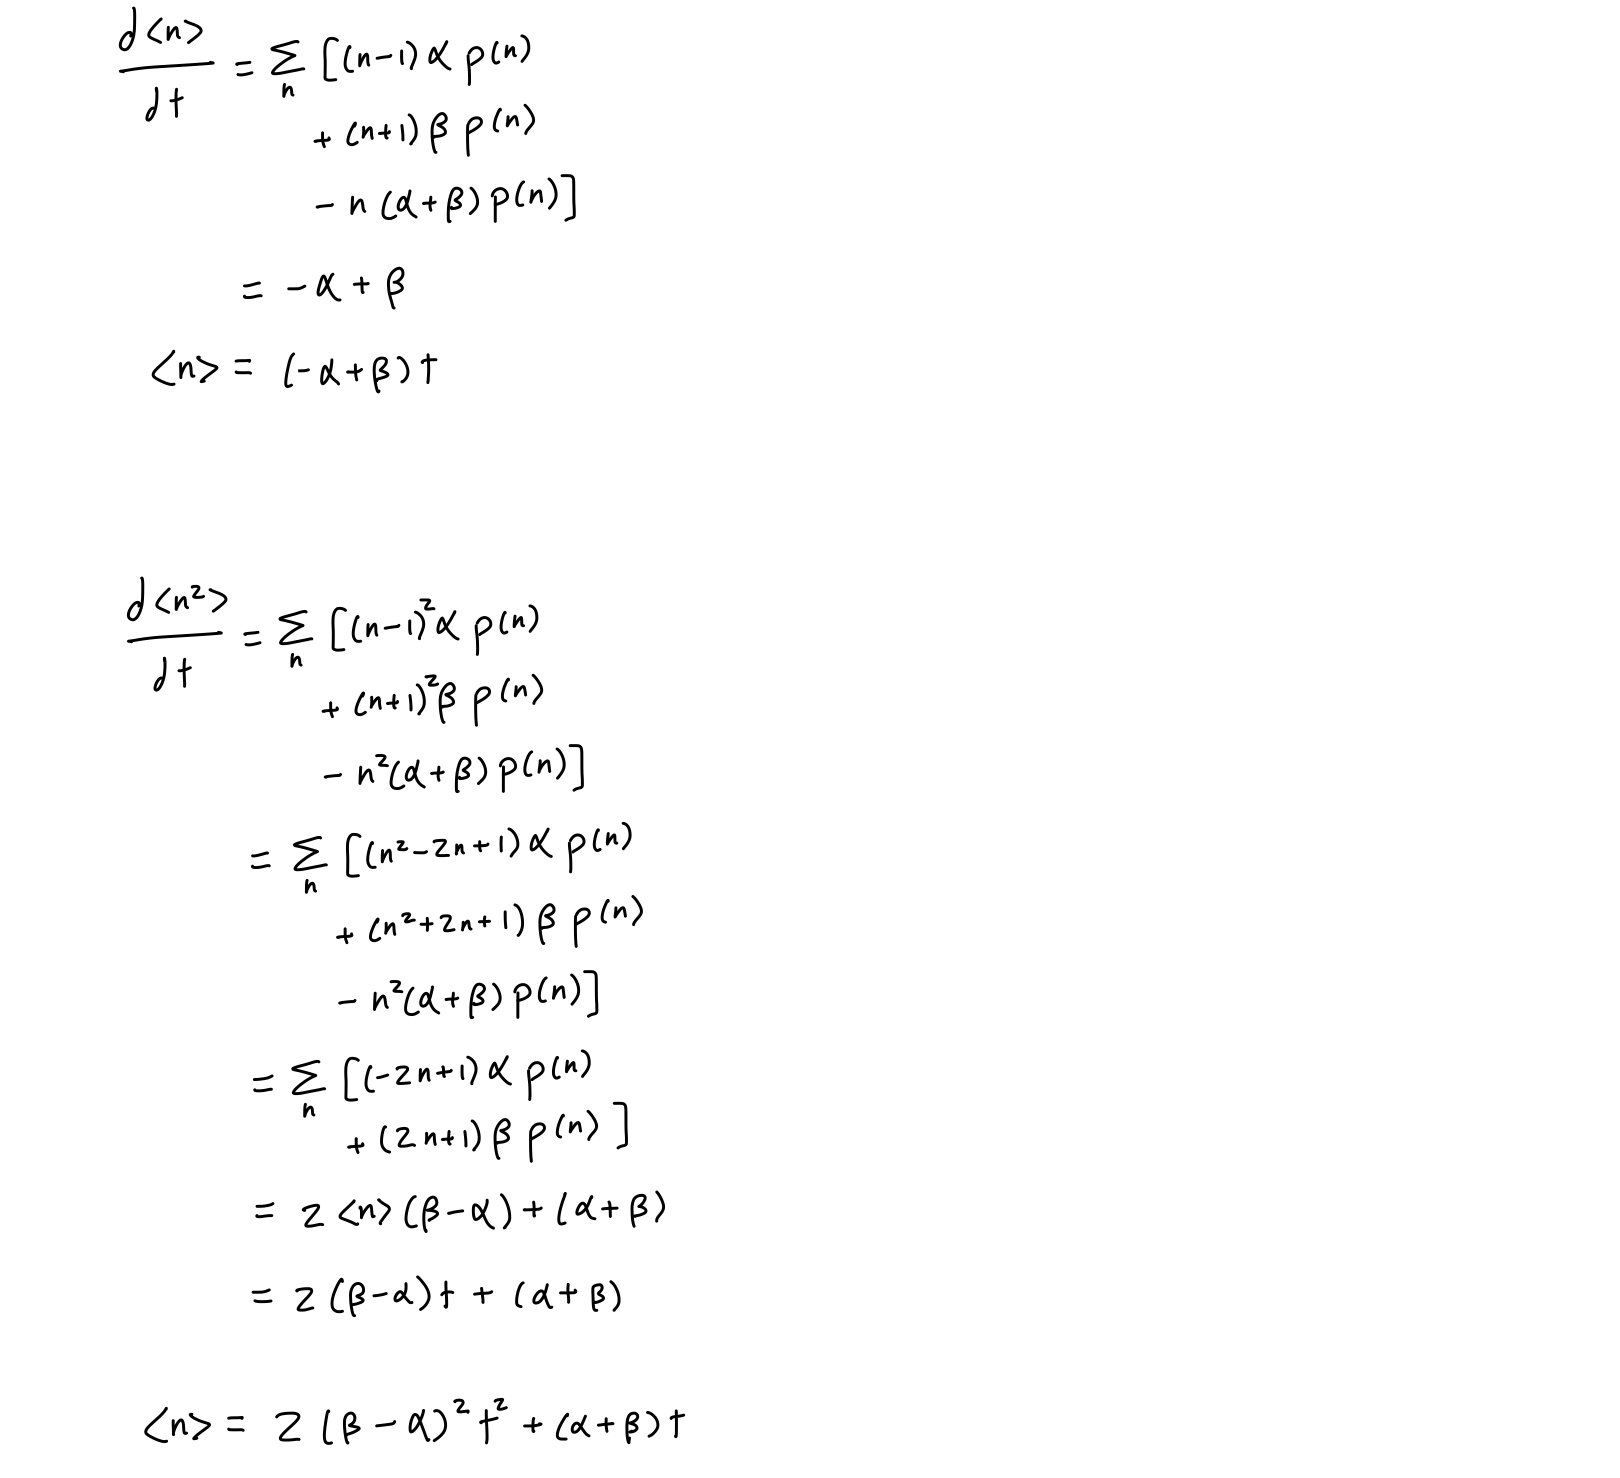 d<n>/dt = Σ_n [(n-1) α p(n)
+ (n+1) β p(n)
- n (α+β) p(n)]
= -α + β
<n> = (-α+β) t
d<n²>/dt = Σ_n [(n-1)² α p(n)
+ (n+1)² β p(n)
- n² (α+β) p(n)]
= Σ_n [(n²-2n+1) α p(n)
+ (n²+2n+1) β p(n)
- n² (α+β) p(n)]
= Σ_n [(-2n+1) α p(n)
+ (2n+1) β p(n)]
= 2 <n> (β-α) + (α+β)
= 2 (β-α) t + (α+β)
<n> = 2 (β-α)² t² + (α+β) t